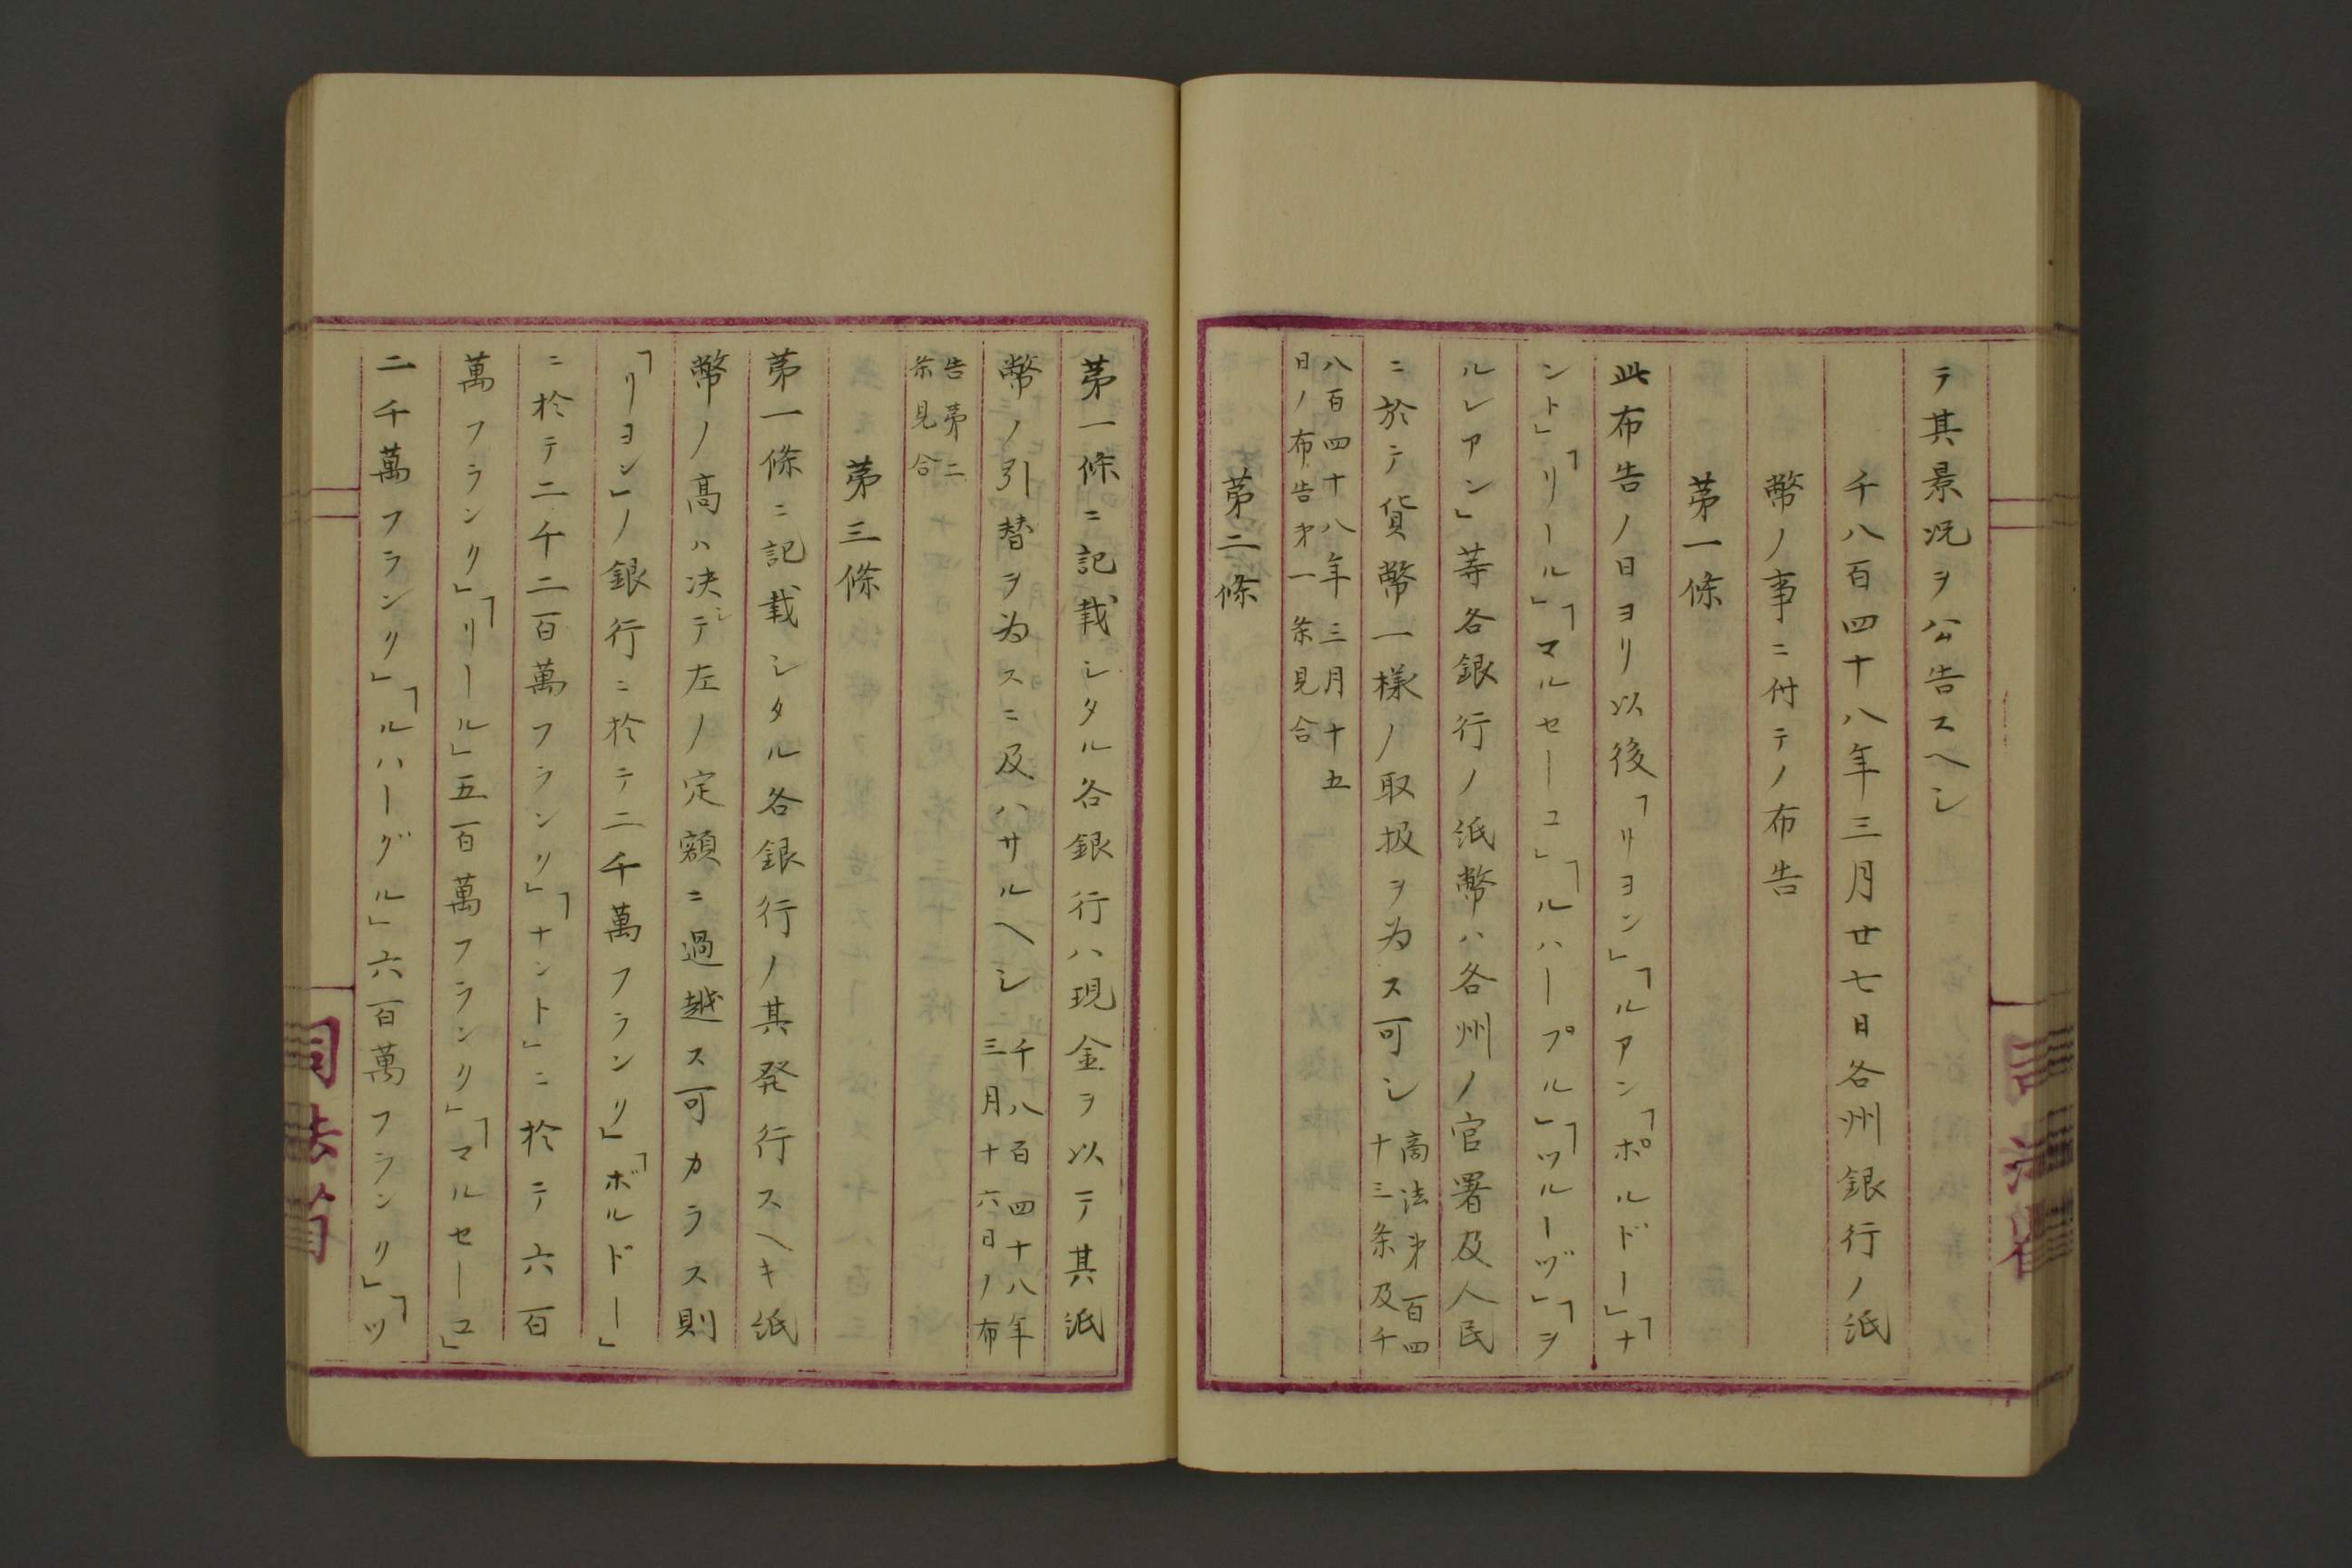 テ其景況ヲ公告スヘシ
千八百四十八年三月廿七日各州銀行ノ紙
幣ノ事ニ付テノ布告
第一條
此布告ノ日ヨリ以後「リヨン」「ルアン「ポルドー」「ナ
ント」「リール」「マルセーユ」「ルハープル」「ツルーヅ」「ヲ
ルレアン」等各銀行ノ紙幣ハ各州ノ官署及人民
ニ於テ貨幣一様ノ取扱ヲ為ス可シ
商法第百四
十三条及千
八百四十八年三月十五
日ノ布告第一条見合
第二條
第一條ニ記載シタル各銀行ハ現金ヲ以テ其紙
幣ノ引替ヲ為スニ及ハサルヘシ
千八百四十八年
三月十六日ノ布
告第二
条見合
第三條
第一條ニ記載シタル各銀行ノ其発行スヘキ紙
幣ノ高ハ决シテ左ノ定額ニ過越ス可カラス則
「リヨン」ノ銀行ニ於テ二千萬フランク」「ボルドー」
ニ於テ二千二百萬フランク」「ナント」ニ於テ六百
萬フランク」「リール」五百萬フランク」「マルセーユ」
二千萬フランク」「ルハーグル」六百萬フランク」「ツ
司法省
司法省